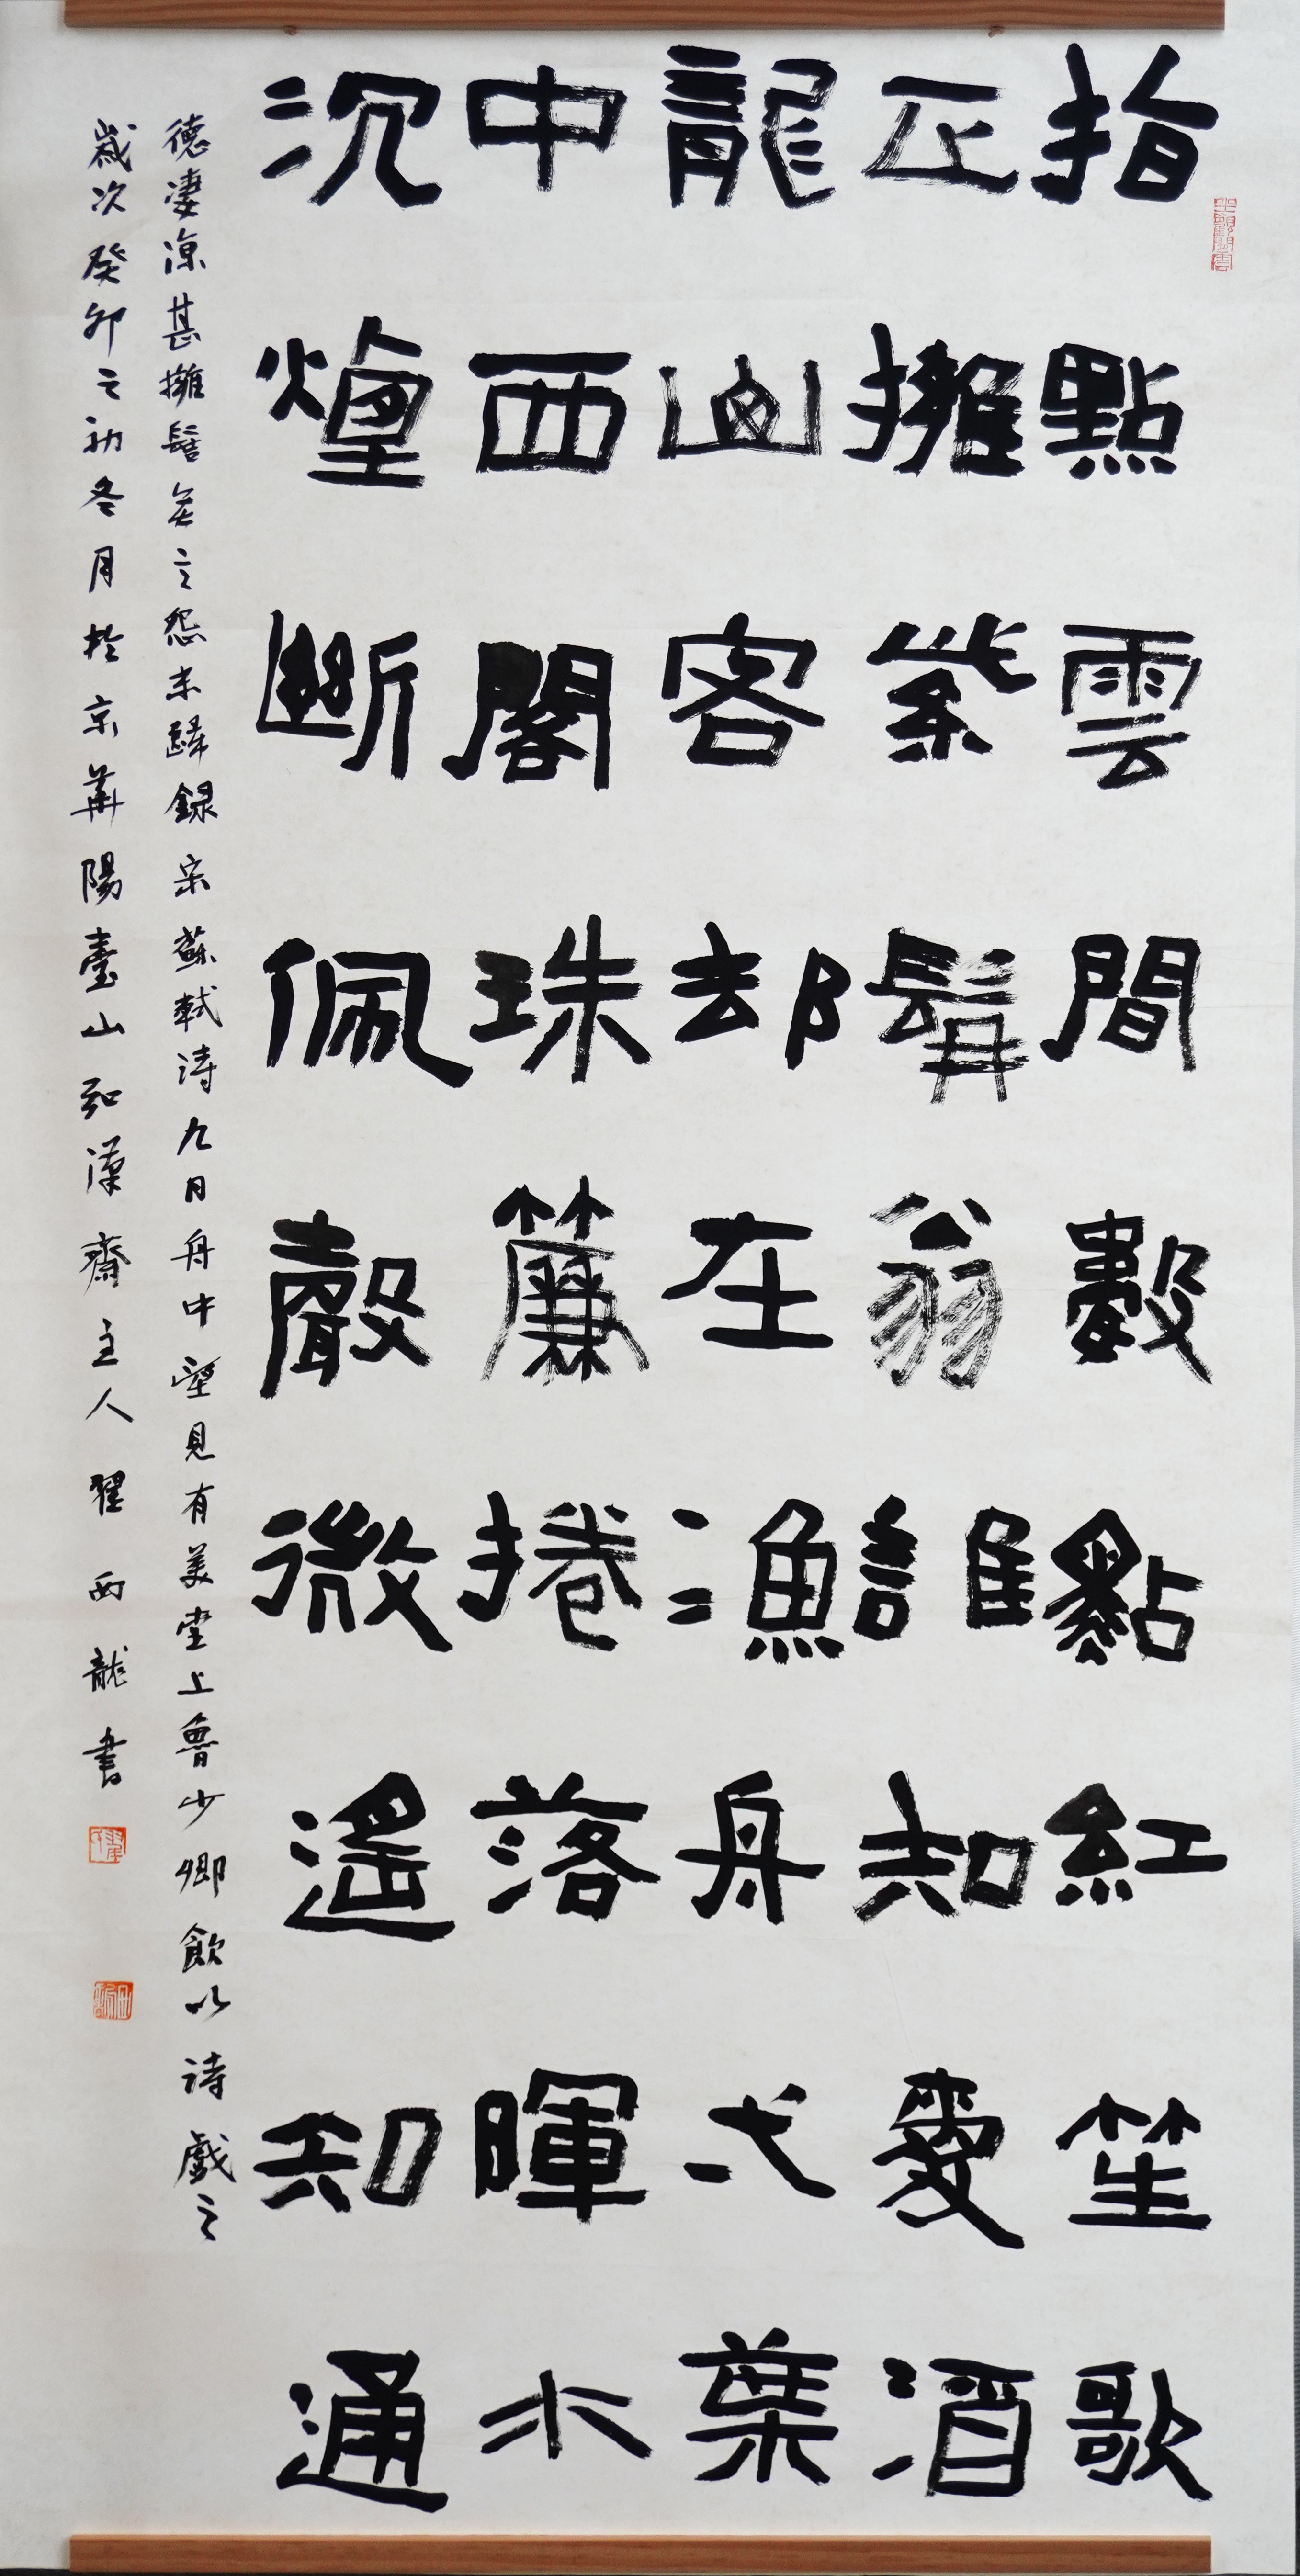 指點雲間數點紅笙歌
正擁紫髯翁誰知愛酒
龍山客却在漁舟弌葉
中西閣珠簾捲落暉水
沉煙斷佩聲微遙知通
德淒涼甚擁髻无言怨未歸錄宋蘇軾詩九日舟中望見有美堂上魯少卿飲以詩戲之
歲次癸卯之初冬月於京華陽臺山弘漢齋主人翟西龍書